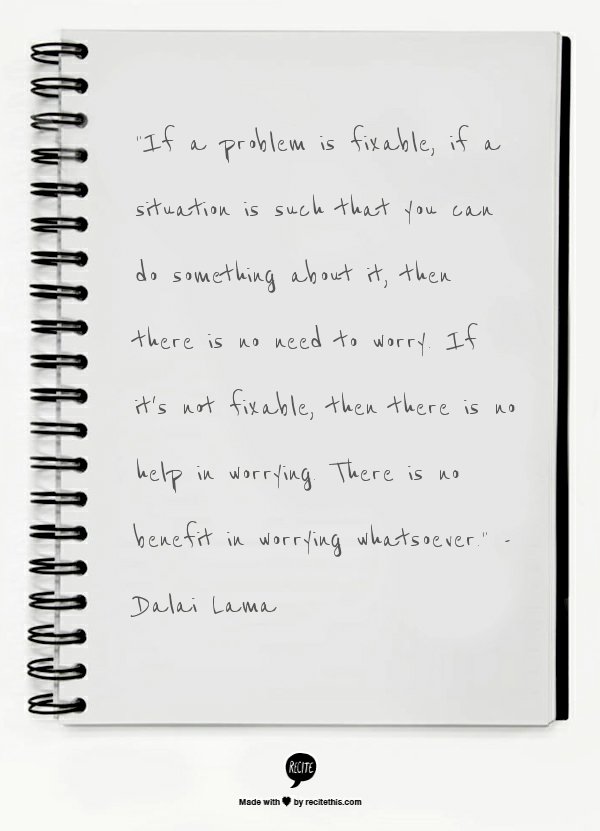 "If a problem is fixable, if a
situation is such that you can
do something about it, then
there is no need to worry. If
it's not fixable, then there is no
help in worrying. There is no
benefit in worrying whatsoever." -
Dalai Lama
RECITE
Made with ♥ by recitethis.com